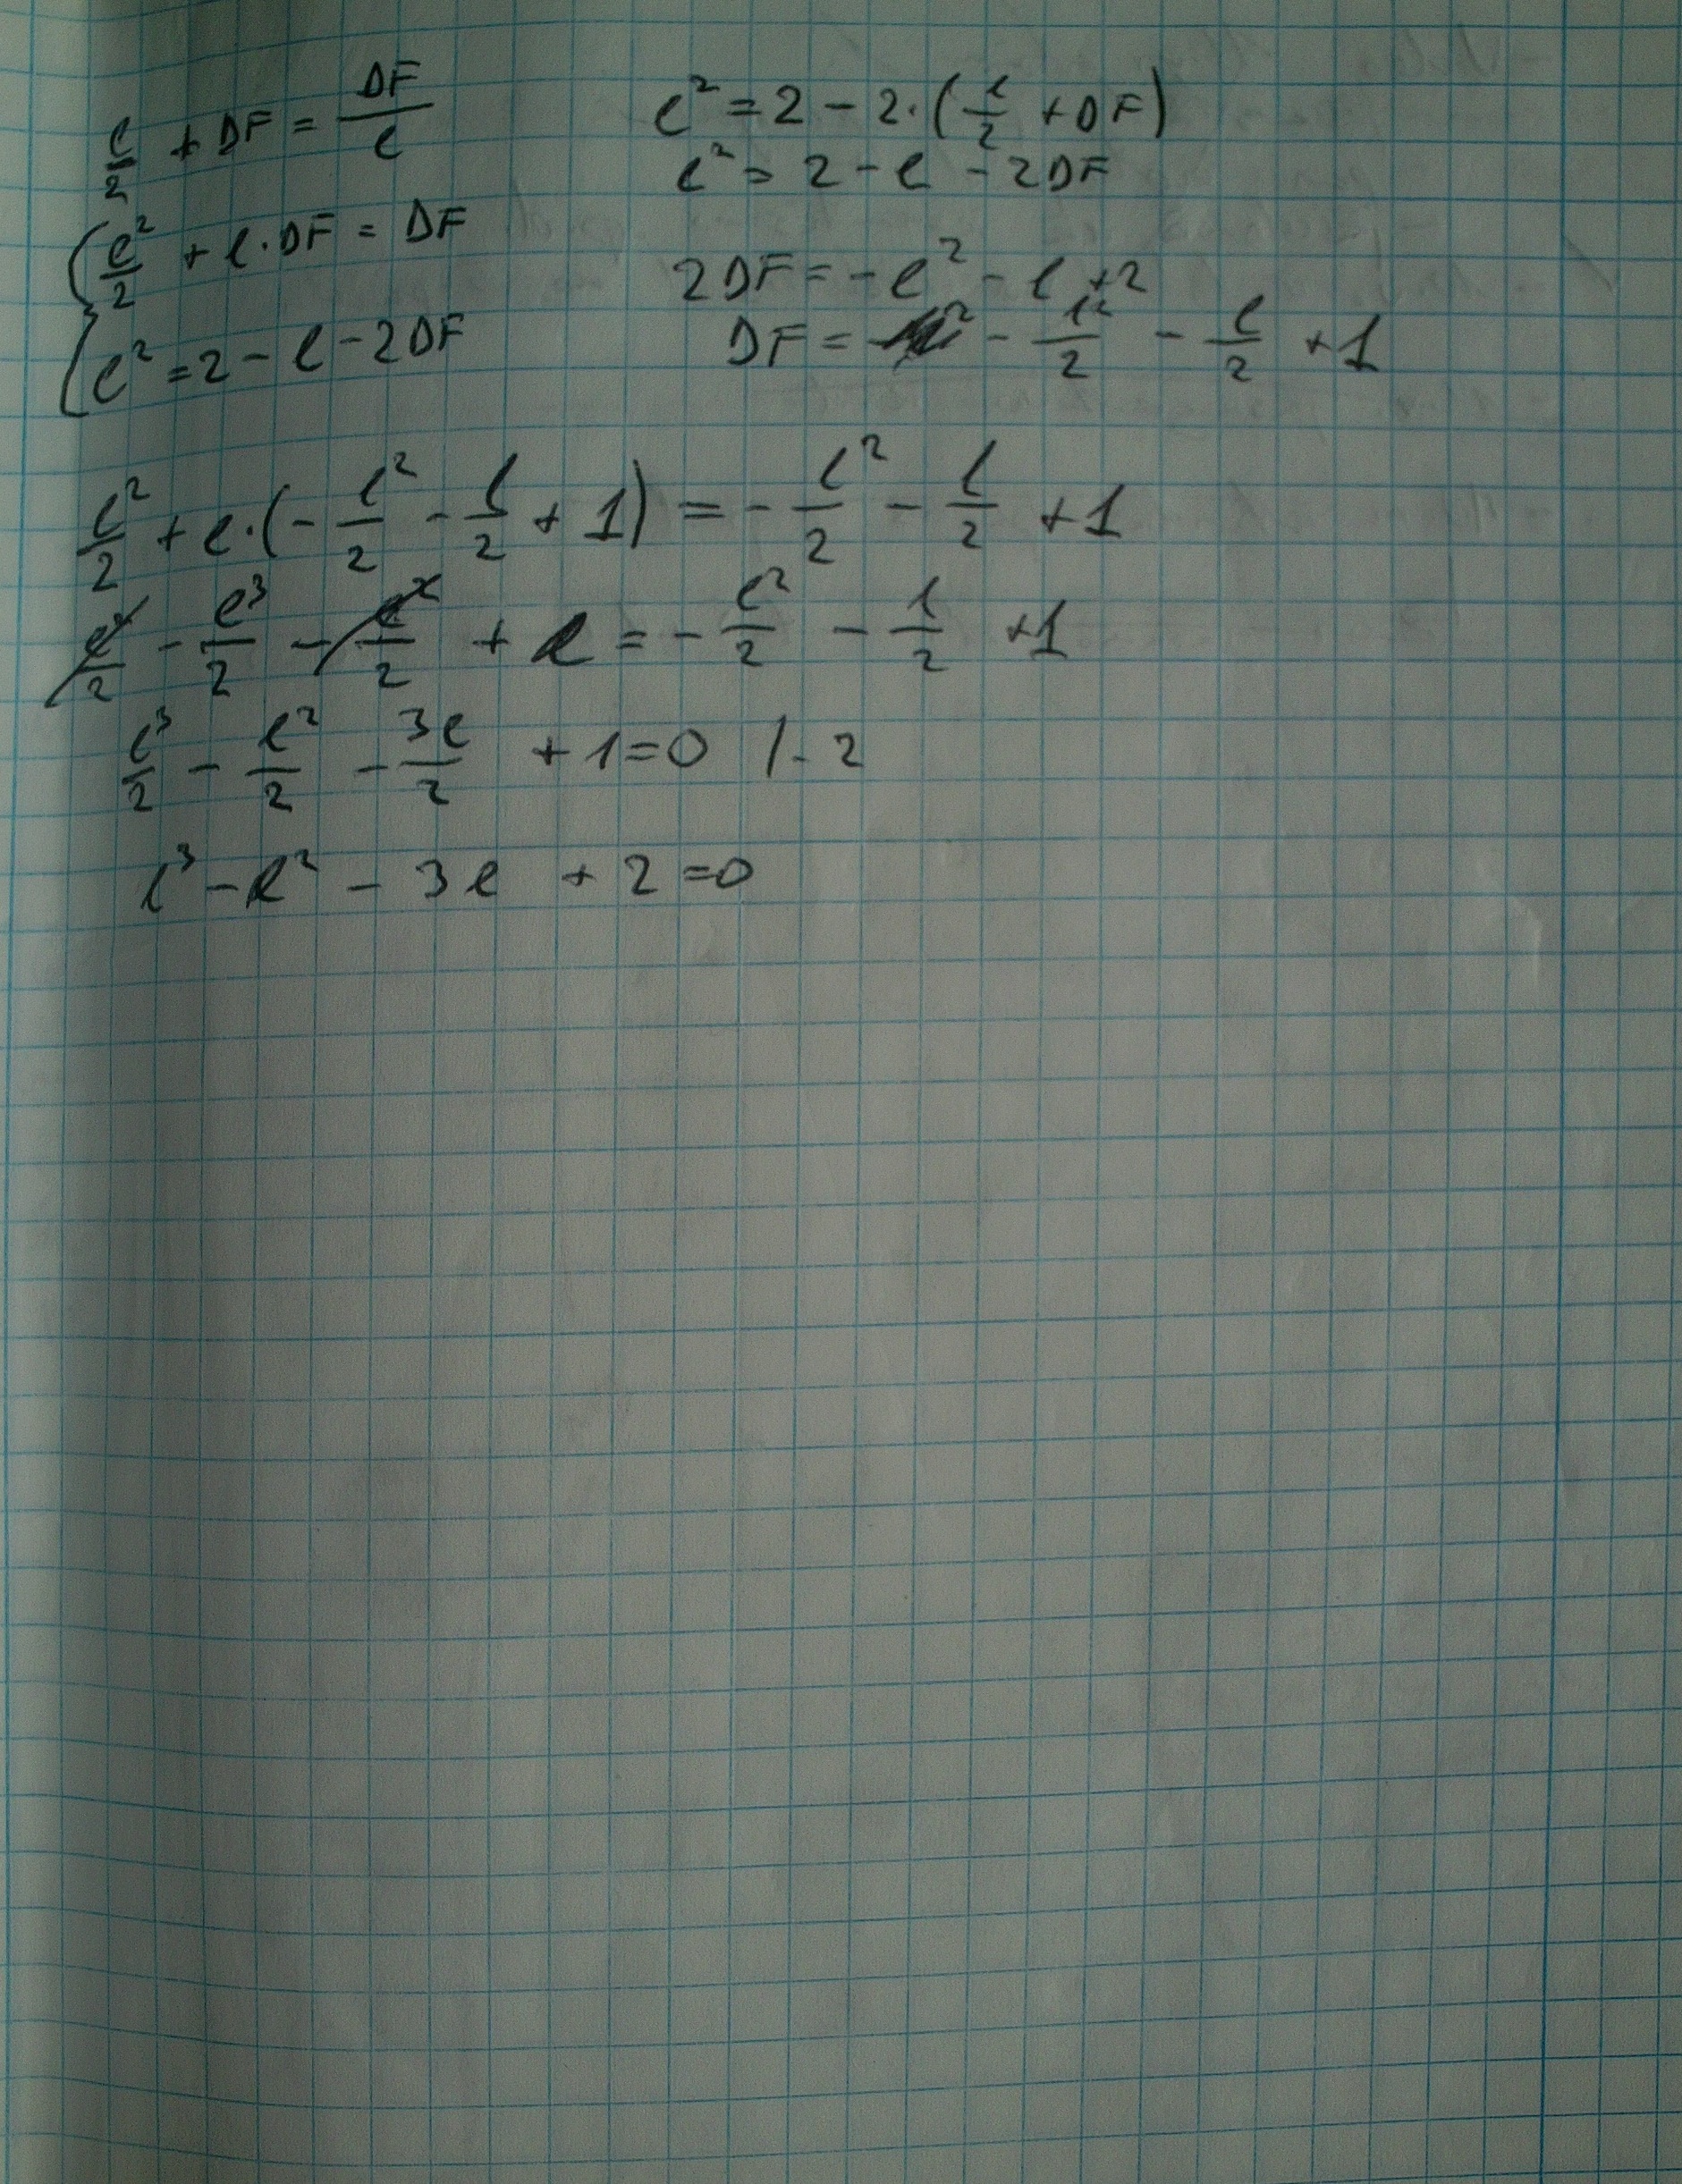 l/2 + DF = DF/l
{ l²/2 + l·DF = DF
l² = 2 - l - 2DF
l² = 2 - 2·(l/2 + DF)
l² = 2 - l - 2DF
2DF = -l² - l + 2
DF = - l²/2 - l/2 + 1
l²/2 + l·(- l²/2 - l/2 + 1) = - l²/2 - l/2 + 1
l²/2 - l³/2 - l²/2 + l = - l²/2 - l/2 + 1
l³/2 - l²/2 - 3l/2 + 1 = 0 /· 2
l³ - l² - 3l + 2 = 0